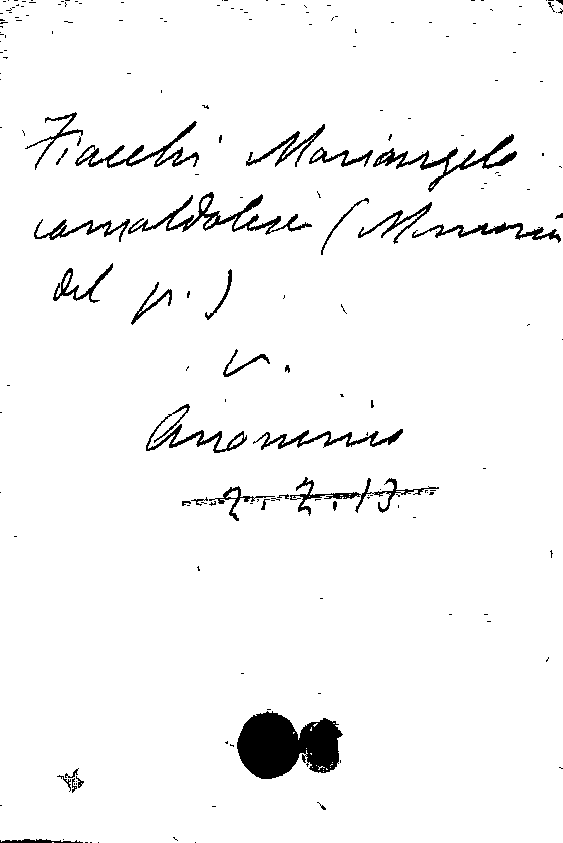 Fiacchi Mariangelo
camaldolese (Memorie
del p.)
v.
Anonimo
2. 2. 13